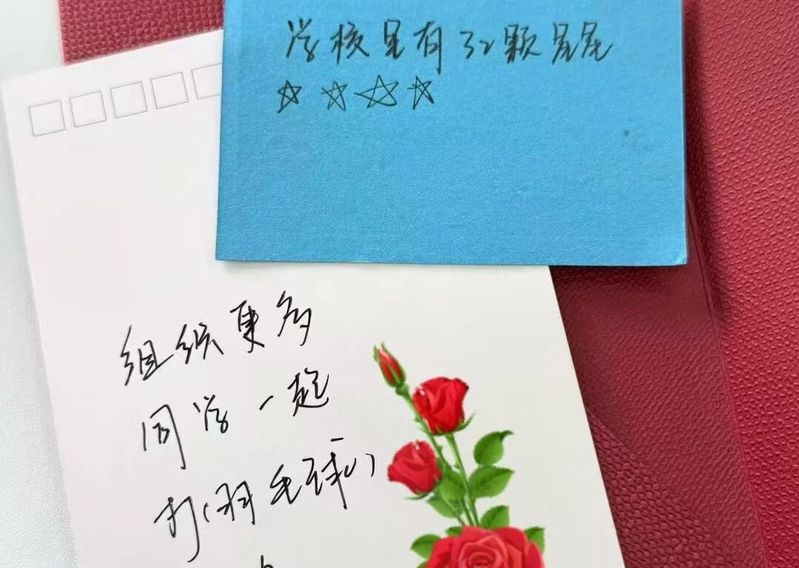 学校里有32颗星星
☆☆☆☆
组织更多
同学一起
打(羽毛球)